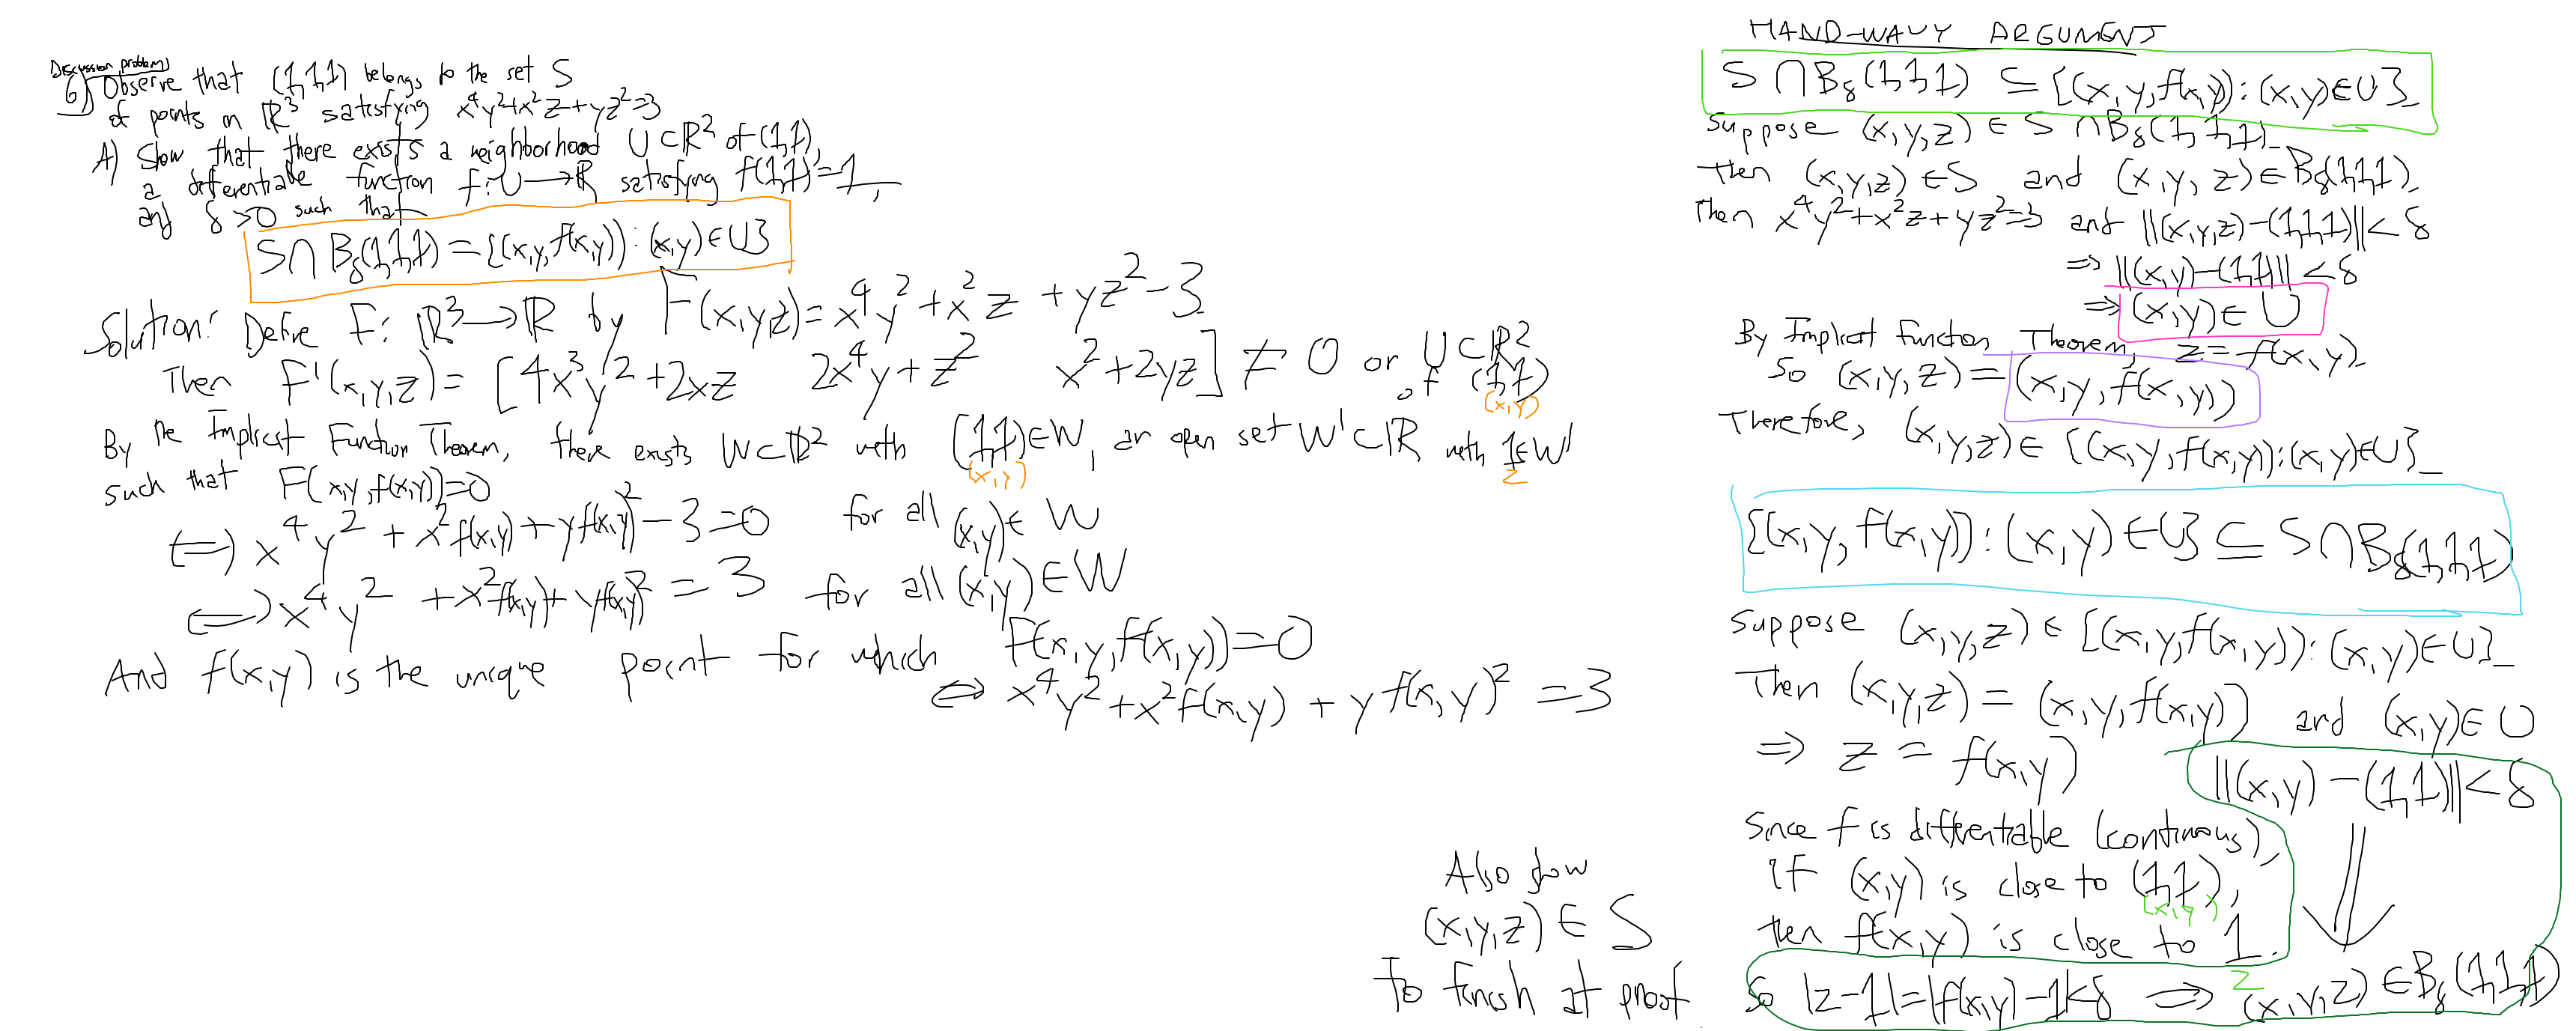 Discussion problems
6) Observe that (1,1,1) belongs to the set S
of points in ℝ³ satisfying x⁴y²+x²z+yz²=3
A) Show that there exists a neighborhood U⊂ℝ² of (1,1),
a differentiable function f:U→ℝ satisfying f(1,1)=1,
and δ>0 such that
S∩B_δ(1,1,1)={(x,y,f(x,y)):(x,y)∈U}
Solution: Define F:ℝ³→ℝ by F(x,y,z)=x⁴y²+x²z+yz²-3
Then F'(x,y,z)=[4x³y²+2xz 2x⁴y+z² x²+2yz]≠0 or U⊂ℝ²
of (1,1)
(x,y)
By the Implicit Function Theorem, there exists W⊂ℝ² with (1,1)∈W, an open set W'⊂ℝ with 1∈W'
(x,y) z
such that F(x,y,f(x,y))=0
⟺ x⁴y²+x²f(x,y)+yf(x,y)²-3=0 for all (x,y)∈W
⟺ x⁴y²+x²f(x,y)+yf(x,y)²=3 for all (x,y)∈W
And f(x,y) is the unique point for which F(x,y,f(x,y))=0
⟺ x⁴y²+x²f(x,y)+yf(x,y)²=3
HAND-WAVY ARGUMENT
S∩B_δ(1,1,1)⊆{(x,y,f(x,y)):(x,y)∈U}
Suppose (x,y,z)∈S∩B_δ(1,1,1).
Then (x,y,z)∈S and (x,y,z)∈B_δ(1,1,1).
Then x⁴y²+x²z+yz²=3 and ||(x,y,z)-(1,1,1)||<δ
⇒ ||(x,y)-(1,1)||<δ
⇒ (x,y)∈U
By Implicit Function Theorem, z=f(x,y).
So (x,y,z)=(x,y,f(x,y))
Therefore, (x,y,z)∈{(x,y,f(x,y)):(x,y)∈U}.
{(x,y,f(x,y)):(x,y)∈U}⊆S∩B_δ(1,1,1)
Suppose (x,y,z)∈{(x,y,f(x,y)):(x,y)∈U}.
Then (x,y,z)=(x,y,f(x,y)) and (x,y)∈U
⇒ z=f(x,y)
||(x,y)-(1,1)||<δ
Since f is differentiable (continuous),
if (x,y) is close to (1,1),
(x,y)
then f(x,y) is close to 1.
z
So |z-1|=|f(x,y)-1|<δ ⇒ (x,y,z)∈B_δ(1,1,1)
Also show
(x,y,z)∈S
To finish at proof